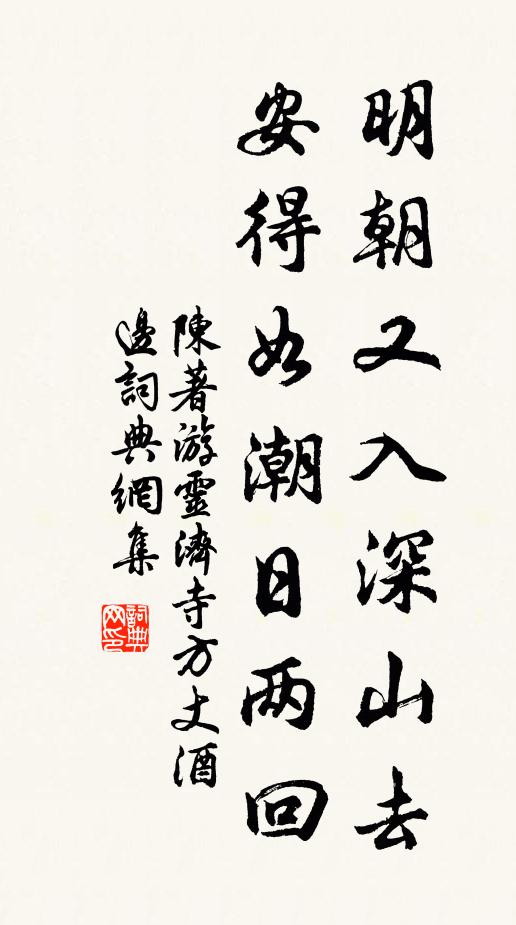 明朝又入深山去
安得如潮日两回
陳著游靈濟寺方丈酒
邊詞典網集
詞典
网印